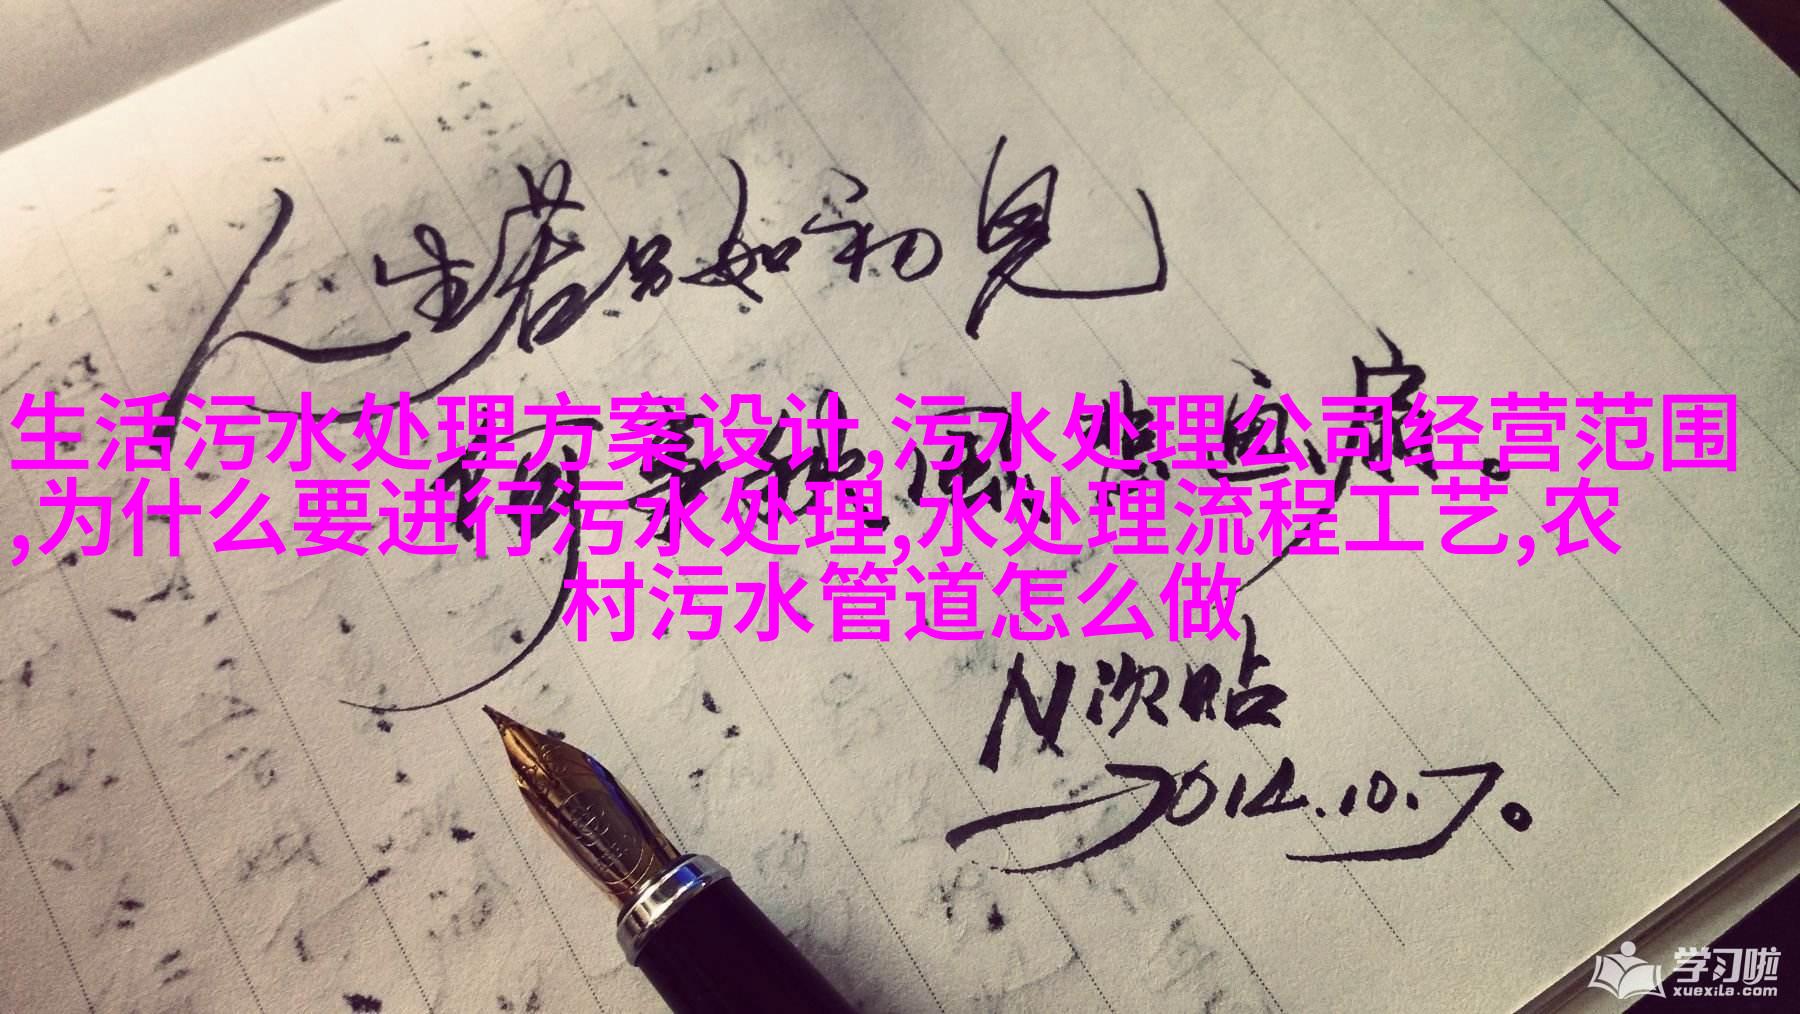 人生若只如初见
何事秋风悲画扇。
生活污水处理方案设计,污水处理公司经营范围
,为什么要进行污水处理,水处理流程工艺,农
村污水管道怎么做
N次贴
2014.10.7。
学习啦
xuexila.com